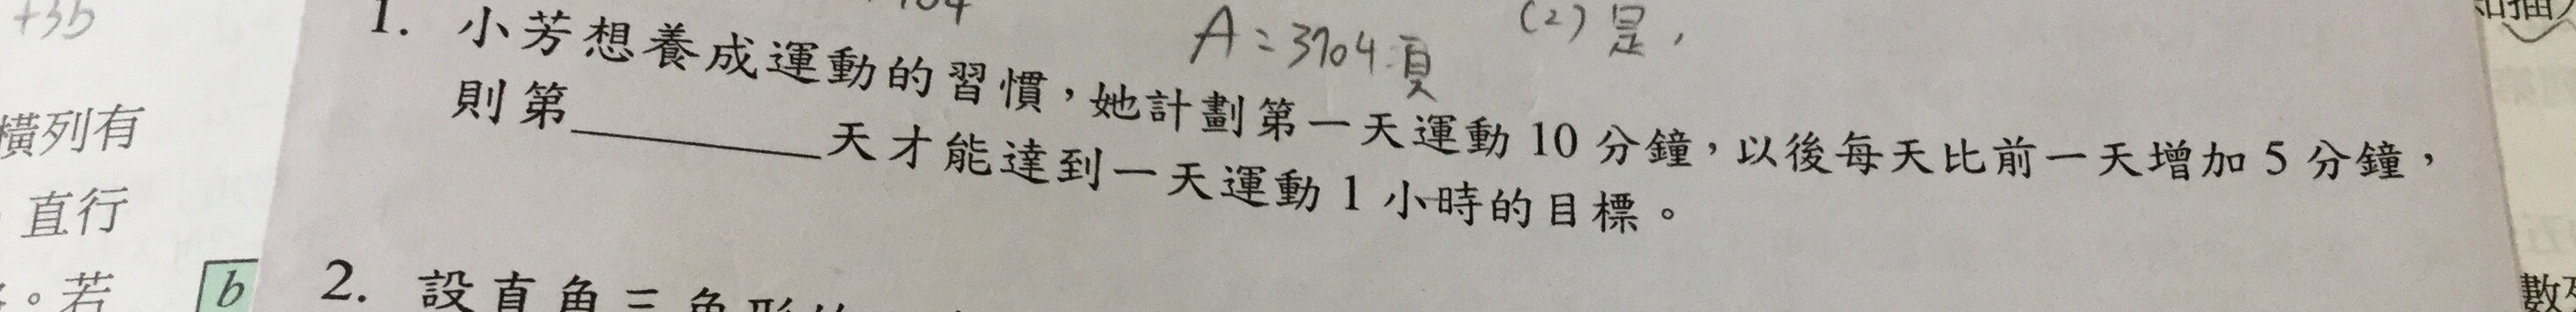 +35
A=3704頁
(2)是,
1. 小芳想養成運動的習慣，她計劃第一天運動10分鐘，以後每天比前一天增加5分鐘，
則第________天才能達到一天運動1小時的目標。
橫列有
直行
。若
b
2. 設直角三角形的